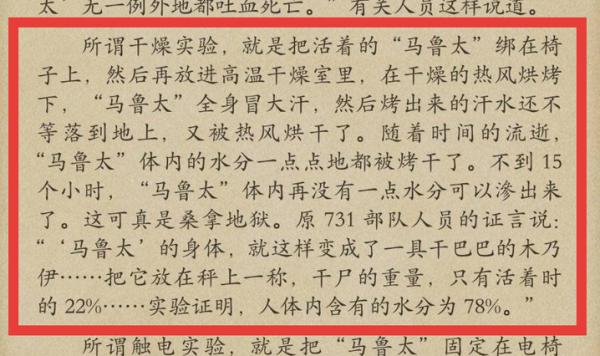 太’无一例外地都吐血死亡。”有关人员这样说道。
所谓干燥实验，就是把活着的“马鲁太”绑在椅
子上，然后再放进高温干燥室里，在干燥的热风烘烤
下，“马鲁太”全身冒大汗，然后烤出来的汗水还不
等落到地上，又被热风烘干了。随着时间的流逝，
“马鲁太”体内的水分一点点地都被烤干了。不到 15
个小时，“马鲁太”体内再没有一点水分可以渗出来
了。这可真是桑拿地狱。原 731 部队人员的证言说：
“‘马鲁太’的身体，就这样变成了一具干巴巴的木乃
伊……把它放在秤上一称，干尸的重量，只有活着时
的 22%……实验证明，人体内含有的水分为 78%。”
所谓触电实验，就是把“马鲁太”固定在电椅